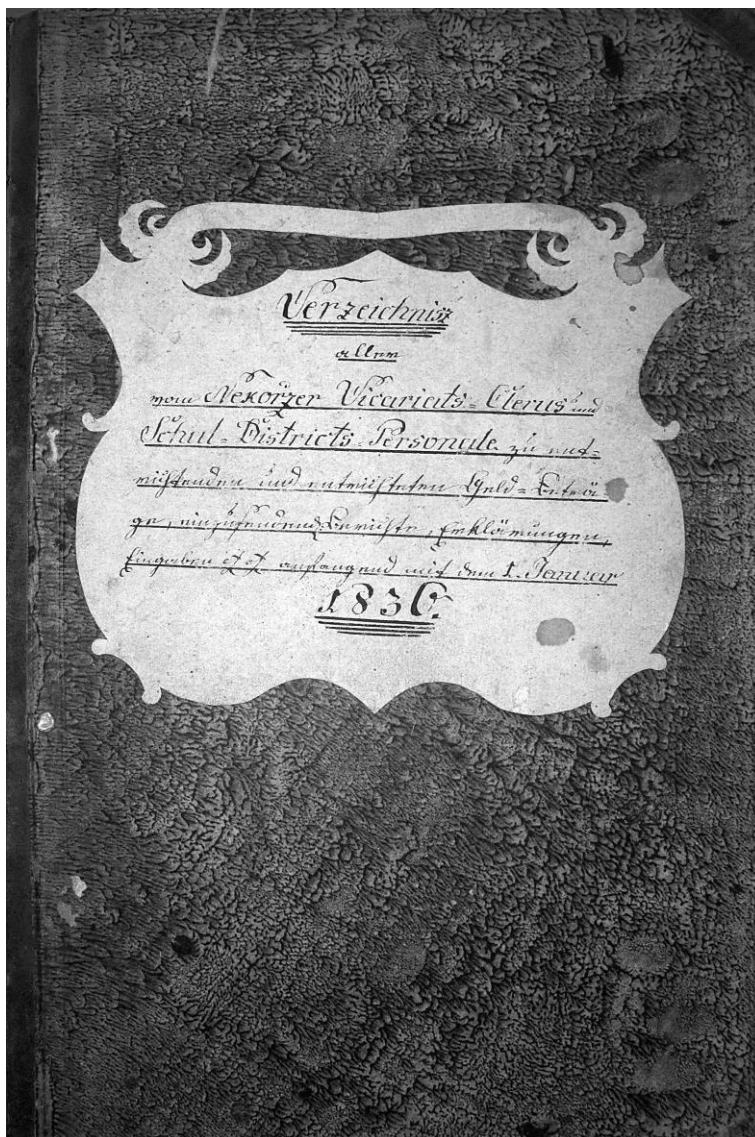 Verzeichnisz
aller
vom Nekořzer Vicariats-Clerus und
Schul-Districts-Personale zu ent-
richtenden und entrichteten Geld-Beträ-
ge, einzusendend. Berichte, Erklärungen,
Eingaben anfangend mit dem 1. Januar
1836.